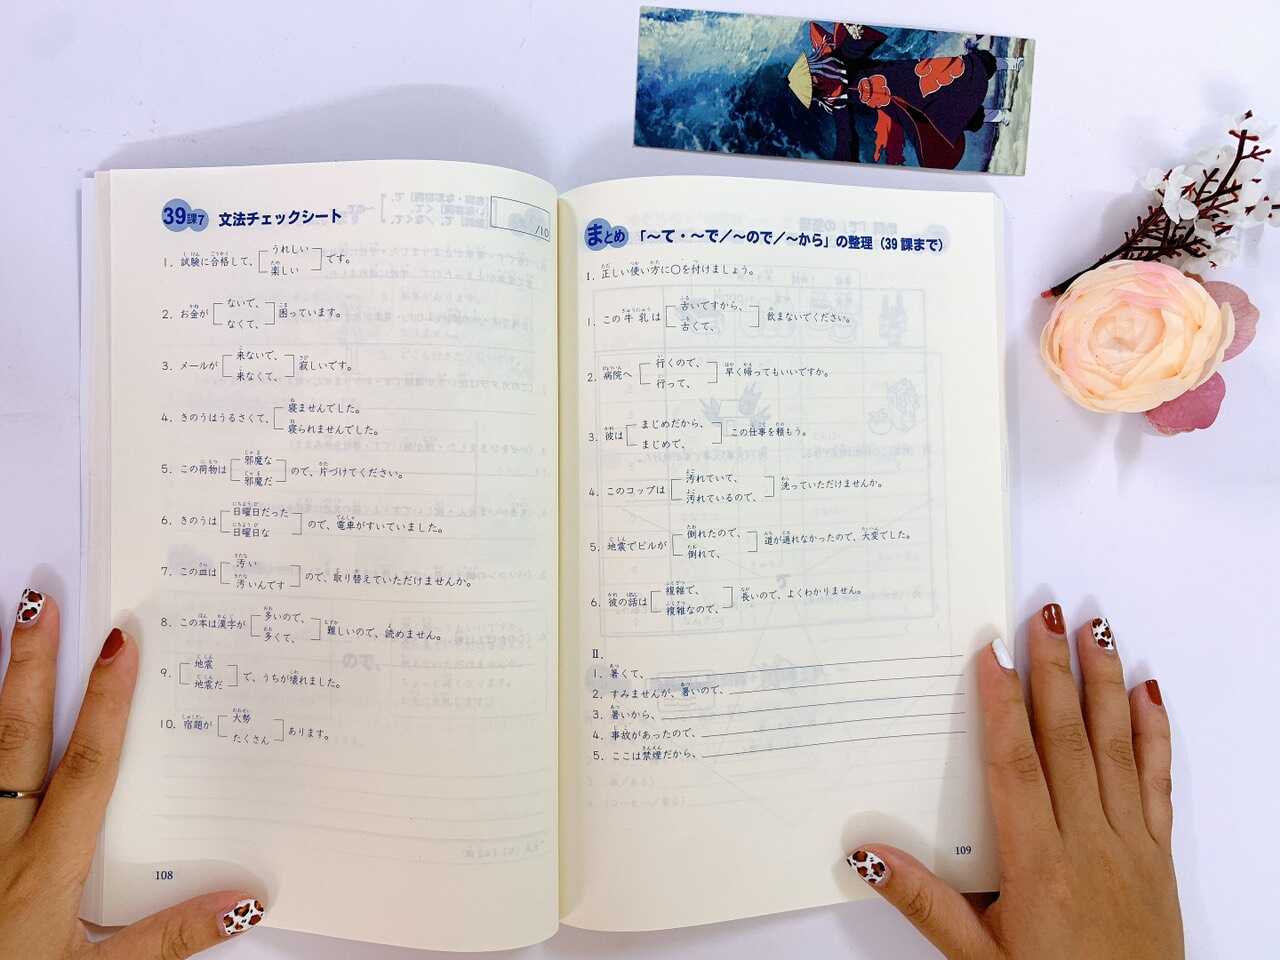 39課7 文法チェックシート
/10
1. 試験に合格して、[うれしい / 楽しい]です。
2. お金が[ないで、 / なくて、]困っています。
3. メールが[来ないで、 / 来なくて、]寂しいです。
4. きのうはうるさくて、[寝ませんでした。 / 寝られませんでした。
5. この荷物は[邪魔な / 邪魔だ]ので、片づけてください。
6. きのうは[日曜日だった / 日曜日な]ので、電車がすいていました。
7. この皿は[汚い / 汚いんです]ので、取り替えていただけませんか。
8. この本は漢字が[多いので、 / 多くて、]難しいので、読めません。
9. [地震 / 地震だ]で、うちが壊れました。
10. 宿題が[大勢 / たくさん]あります。
108
まとめ 「〜て・〜で/〜ので/〜から」の整理(39課まで)
I. 正しい使い方に○を付けましょう。
1. この牛乳は[古いですから、 / 古くて、]飲まないでください。
2. 病院へ[行くので、 / 行って、]早く帰ってもいいですか。
3. 彼は[まじめだから、 / まじめで、]この仕事を頼もう。
4. このコップは[汚れていて、 / 汚れているので、]洗っていただけませんか。
5. 地震でビルが[倒れたので、 / 倒れて、]道が通れなかったので、大変でした。
6. 彼の話は[複雑で、 / 複雑なので、]長いので、よくわかりません。
II.
1. 暑くて、
2. すみませんが、暑いので、
3. 暑いから、
4. 事故があったので、
5. ここは禁煙だから、
109